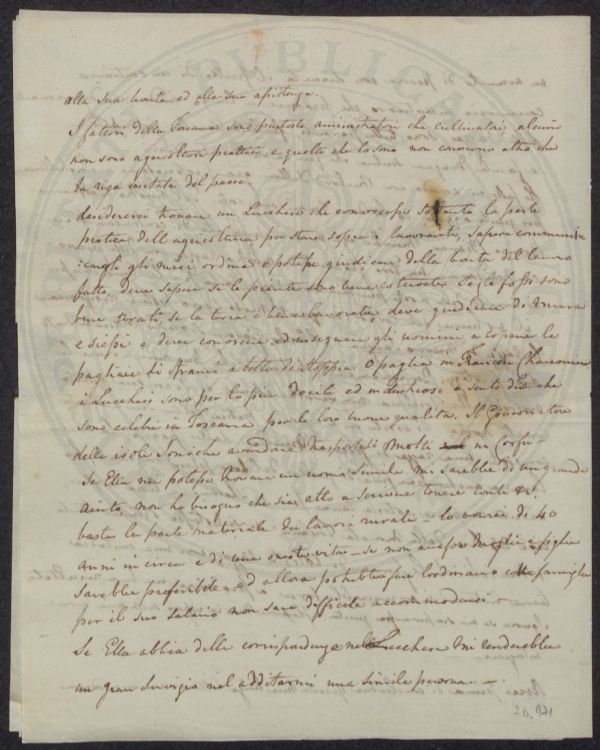 alla sua bontà ed alla sua assistenza.
I fattori della Toscana sono piutosto aministratori che cultivatori alcuni
non sono agricoltori prattici e quelli che lo sono non conoscono altro che
la riga usitata del paese.
desidererei trovare un Lucchese che conoscesse soltanto la parte
pratica dell agricoltura per stare sopra i lavoranti, sapere communi
:cargli gli miei ordini e potesse giudicare della bontà del lavoro
fatto, deve sapere se le piante sono bene coltivate se gli fossi sono
bene tirati se la terra è bene lavorata, deve giudicare di mura
e siepi e deve conoscere ed insegnare gli uomini a tornare le
pagliai li strami a tetto di stoppia o paglia in Francese Chaumine
i Lucchesi sono per lo più docili ed industriosi e sento dire che
sono celebri in Toscana per le loro buone qualità. Il Governatore
delle isole Ioniche avendone trasportati molti in Corfù -
Se Ella mi potesse trovare un uomo simile mi sarebbe di un grande
aiuto, non ho bisogno che sia atto a scrivere tenere conti &c.
basta la parte materiale dei lavori rurali - lo vorrei di 40
anni in circa e di una onesta vita - se non avesse moglie e figlie
sarebbe preferibile ed allora potrebbe fare l'ordinario famiglia
per il suo salario non sarà difficile accommodarci
Se Ella abbia delle corrispondenze nel Lucchese mi renderebbe
un gran servigio nel additarmi una simile persona. -
20. 171